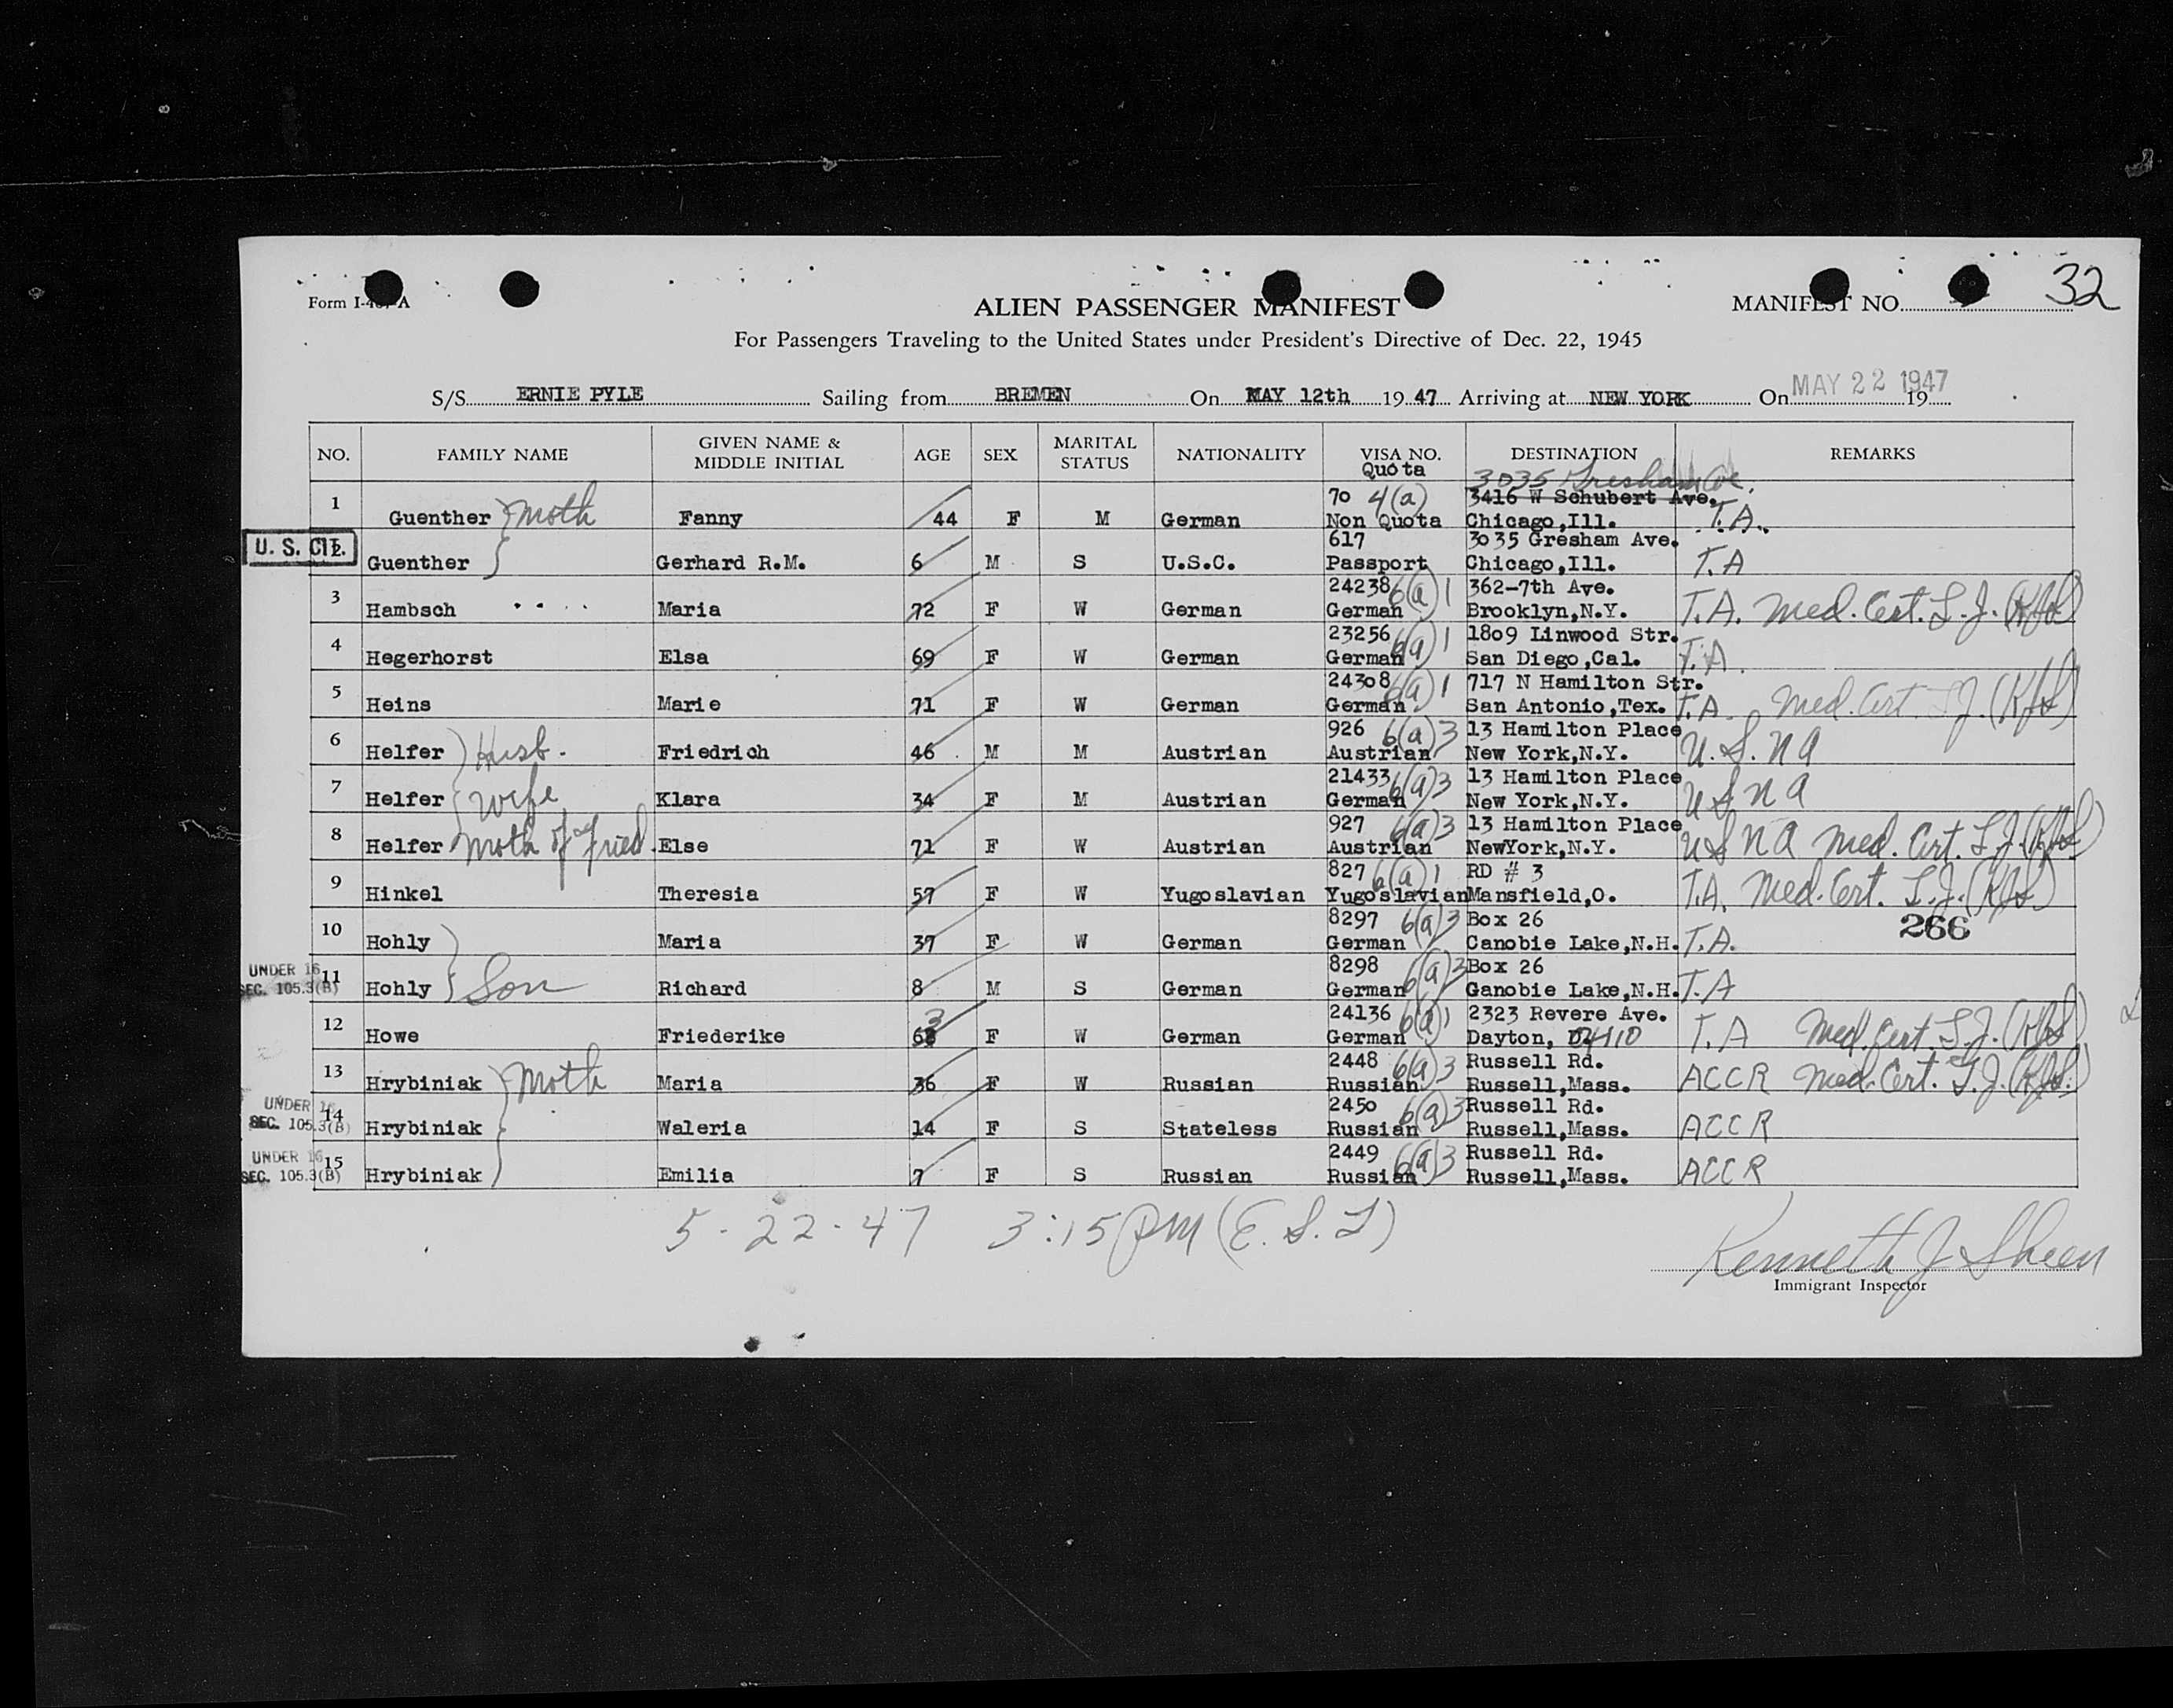 32
Form I-4 -A
ALIEN PASSENGER MANIFEST
MANIFEST NO.
For Passengers Traveling to the United States under President's Directive of Dec. 22, 1945
S/S ERNIE PYLE Sailing from BREMEN On MAY 12th 19 47 Arriving at NEW YORK On MAY 22 1947 19
NO. FAMILY NAME GIVEN NAME & MIDDLE INITIAL AGE SEX MARITAL STATUS NATIONALITY VISA NO. Quota DESTINATION REMARKS
3035 Gresham Ave.
1 70 4(a) 3416 W Schubert Ave.
Guenther Moth Fanny 44 F M German Non Quota Chicago,Ill. T.A.
U. S. CIT. 2 617 3035 Gresham Ave.
Guenther Gerhard R.M. 6 M S U.S.C. Passport Chicago,Ill. T.A
3 24238 6(a)1 362-7th Ave.
Hambsch Maria 72 F W German German Brooklyn,N.Y. T.A. Med. Cert. L.J. (KJS)
4 23256 6(a)1 1809 Linwood Str.
Hegerhorst Elsa 69 F W German German San Diego,Cal. T.A.
5 24308 6(a)1 717 N Hamilton Str.
Heins Marie 71 F W German German San Antonio,Tex. T.A. Med. Cert. L.J. (KJS)
6 926 6(a)3 13 Hamilton Place
Helfer Husb. Friedrich 46 M M Austrian Austrian New York,N.Y. U.S.NA
7 21433 6(a)3 13 Hamilton Place
Helfer Wife Klara 34 F M Austrian German New York,N.Y. USNA
8 927 6(a)3 13 Hamilton Place
Helfer Moth of Fried. Else 71 F W Austrian Austrian NewYork,N.Y. USNA Med. Cert. L.J. (KJS)
9 827 6(a)1 RD # 3
Hinkel Theresia 57 F W Yugoslavian Yugoslavian Mansfield,O. T.A. Med. Cert. L.J. (KJS)
266
10 8297 6(a)3 Box 26
Hohly Maria 37 F W German German Canobie Lake,N.H. T.A.
UNDER 16 SEC. 105.3(B) 11 8298 6(a)3 Box 26
Hohly Son Richard 8 M S German German Ganobie Lake,N.H. T.A
12 24136 6(a)1 2323 Revere Ave.
Howe Friederike 63 F W German German Dayton, OHIO T.A Med. Cert. L.J. (KJS)
13 2448 6(a)3 Russell Rd.
Hrybiniak Moth Maria 36 F W Russian Russian Russell,Mass. ACCR Med. Cert. L.J. (KJS)
UNDER 16 SEC. 105.3(B) 14 2450 6(a)3 Russell Rd.
Hrybiniak Waleria 14 F S Stateless Russian Russell,Mass. ACCR
UNDER 16 SEC. 105.3(B) 15 2449 6(a)3 Russell Rd.
Hrybiniak Emilia 7 F S Russian Russian Russell,Mass. ACCR
5-22-47 3:15 PM (E.S.T)
Kenneth J Sheen
Immigrant Inspector